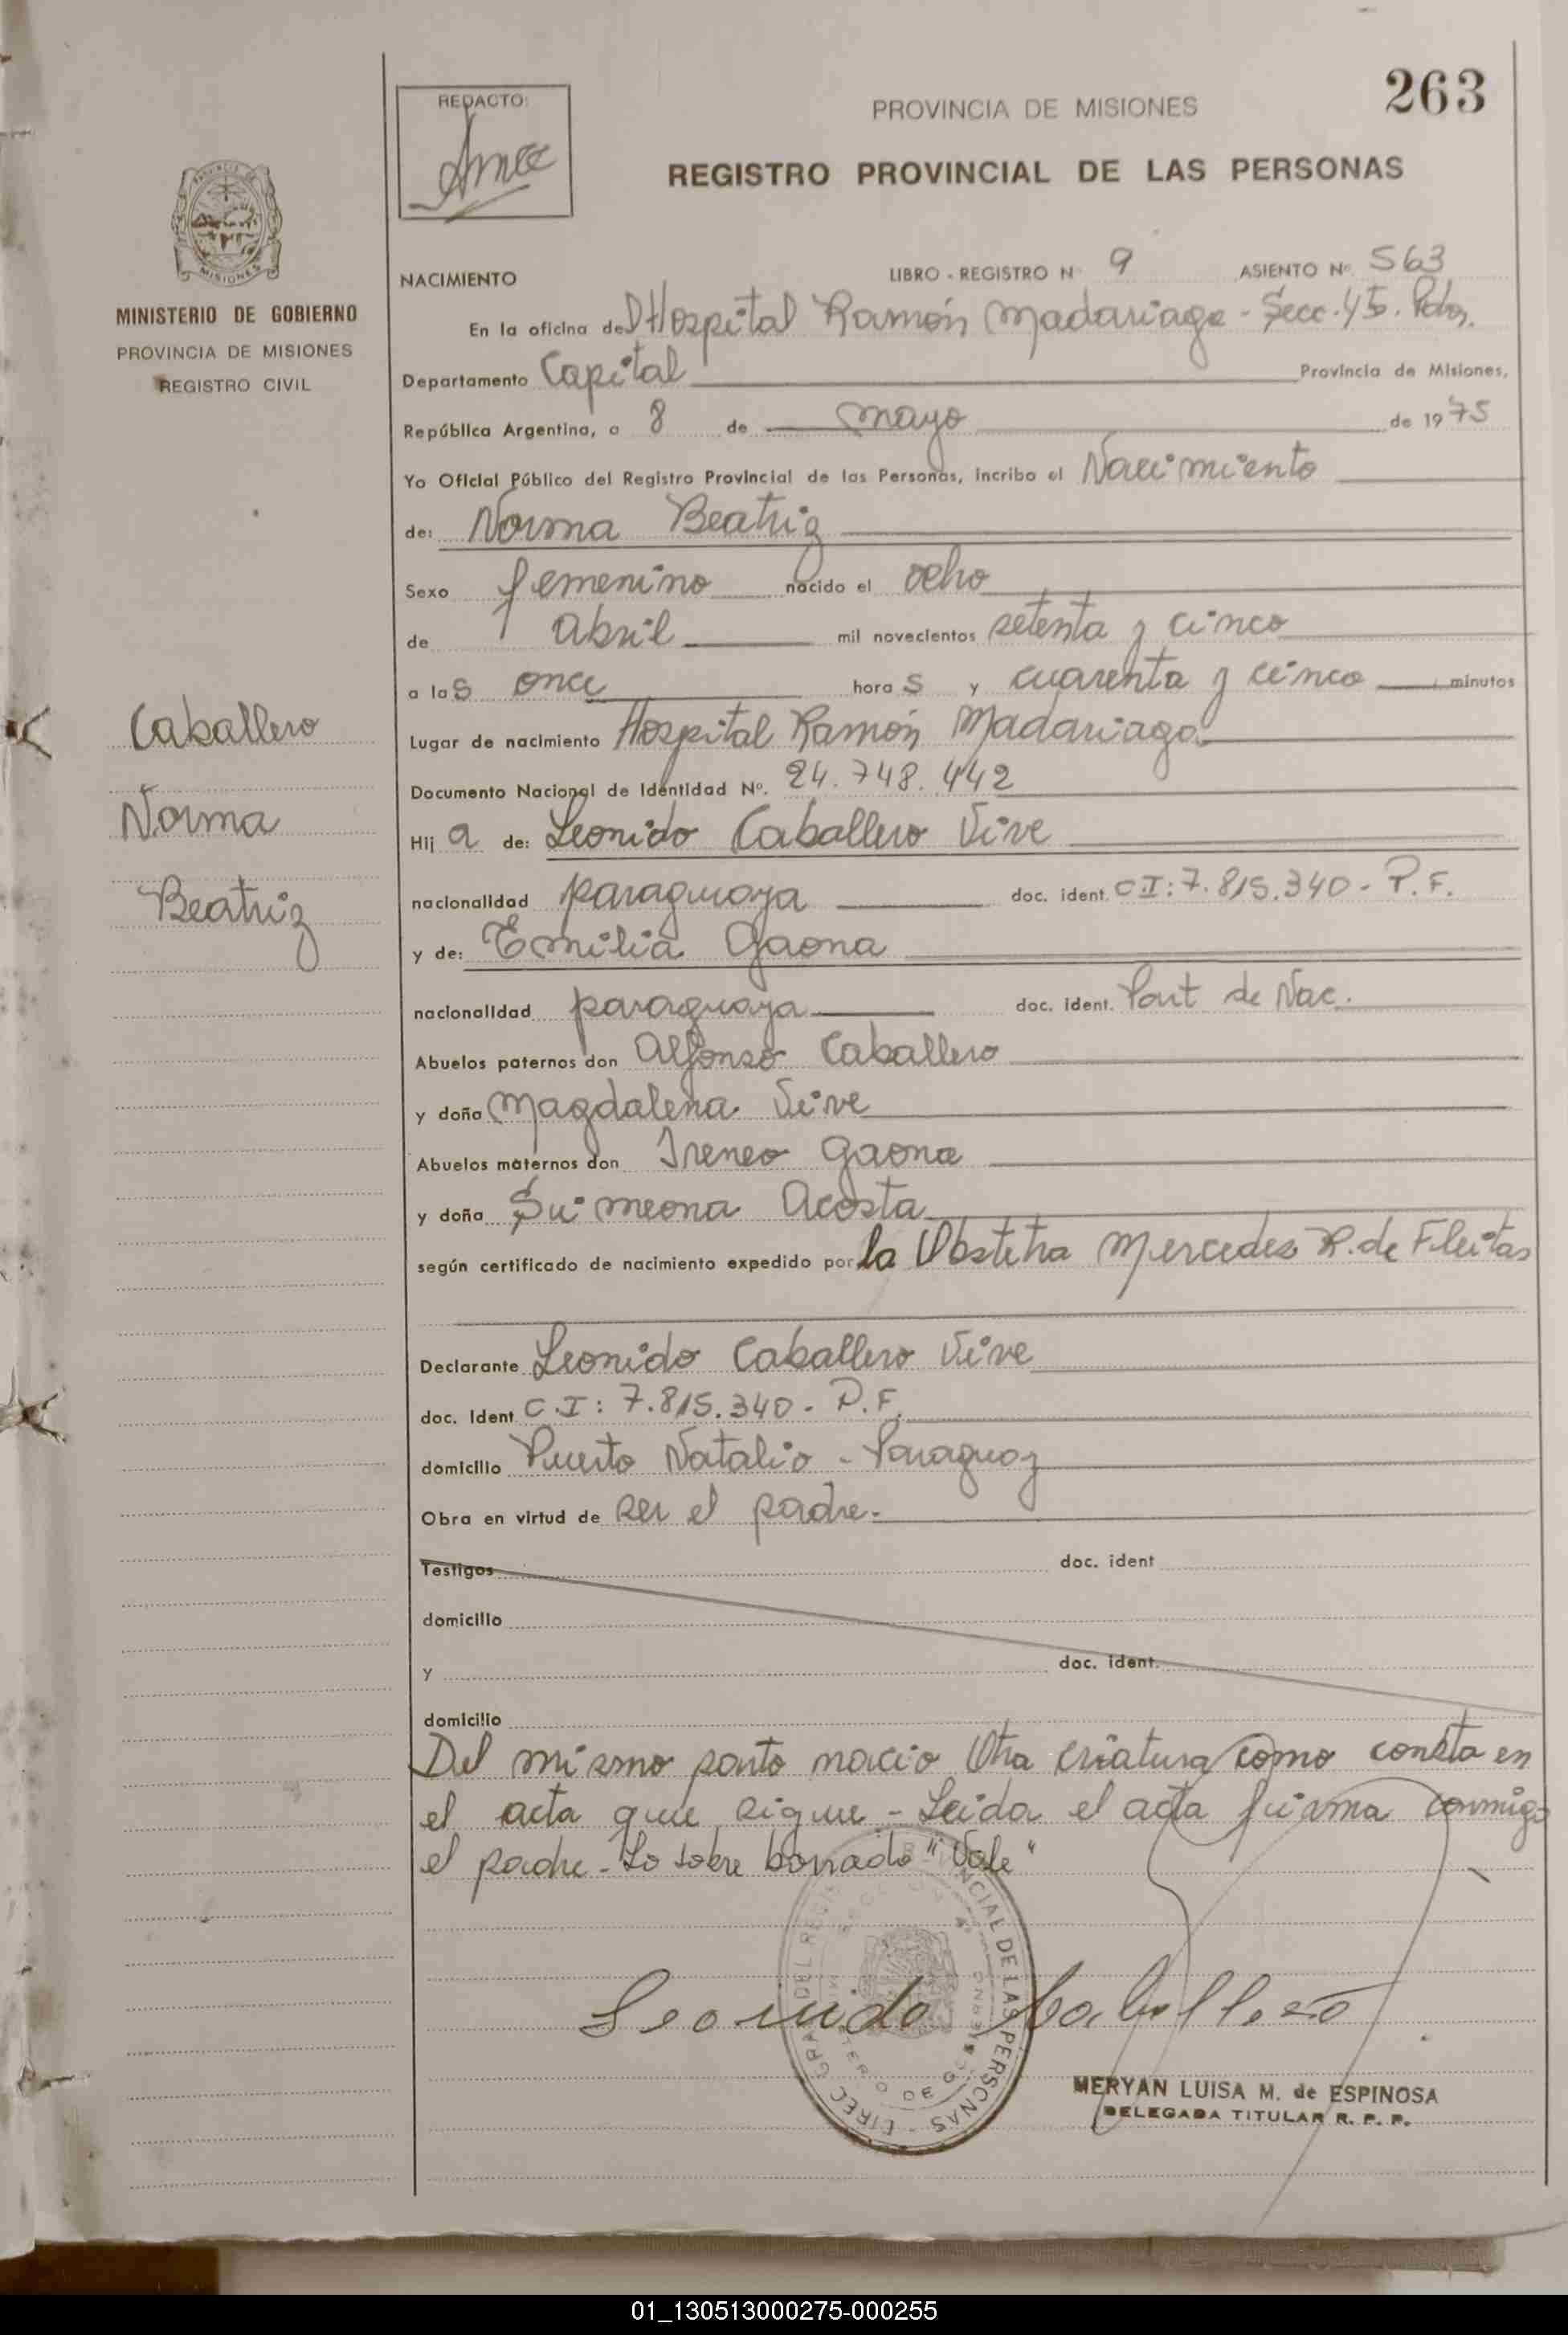 263
REDACTO:
PROVINCIA DE MISIONES
REGISTRO PROVINCIAL DE LAS PERSONAS
MISIONES
MINISTERIO DE GOBIERNO
PROVINCIA DE MISIONES
REGISTRO CIVIL
NACIMIENTO LIBRO - REGISTRO Nº 9 ASIENTO Nº 563
En la oficina del Hospital Ramón Madariaga - Secc. 4ta. Pdas.
Departamento Capital Provincia de Misiones,
República Argentina, a 8 de mayo de 1975
Yo Oficial Público del Registro Provincial de las Personas, incribo el Nacimiento
de: Norma Beatriz
Sexo femenino nacido el ocho
de abril mil novecientos setenta y cinco
a las once horas y cuarenta y cinco minutos
Lugar de nacimiento Hospital Ramón Madariaga
Documento Nacional de Identidad Nº. 24.748.442
Hija de: Leonido Caballero Vive
nacionalidad paraguaya doc. ident. CI: 7.815.340 - P.F.
y de: Emilia Gaona
nacionalidad paraguaya doc. ident. Part de Nac.
Abuelos paternos don Alfonso Caballero
y doña Magdalena Vive
Abuelos maternos don Ireneo Gaona
y doña Suimeona Acosta
según certificado de nacimiento expedido por la Obstetra Mercedes R. de Fleitas
Declarante Leonido Caballero Vive
doc. Ident C.I: 7.815.340 - P.F.
domicilio Puerto Natalio - Paraguay
Obra en virtud de ser el padre.
Testigos doc. ident
domicilio
y doc. ident.
domicilio
Del mismo parto nacio Otra criatura como consta en
el acta que sigue - Leida el acta firma conmigo
el padre - Lo sobre borrado "Vale"
Caballero
Norma
Beatriz
Leonido Caballero
MERYAN LUISA M. de ESPINOSA
DELEGADA TITULAR R. P. P.
01_130513000275-000255